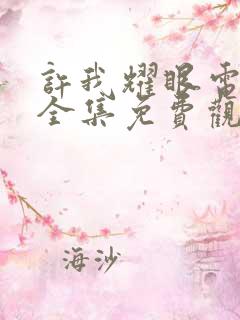 許我耀眼電
全集免費觀
海沙